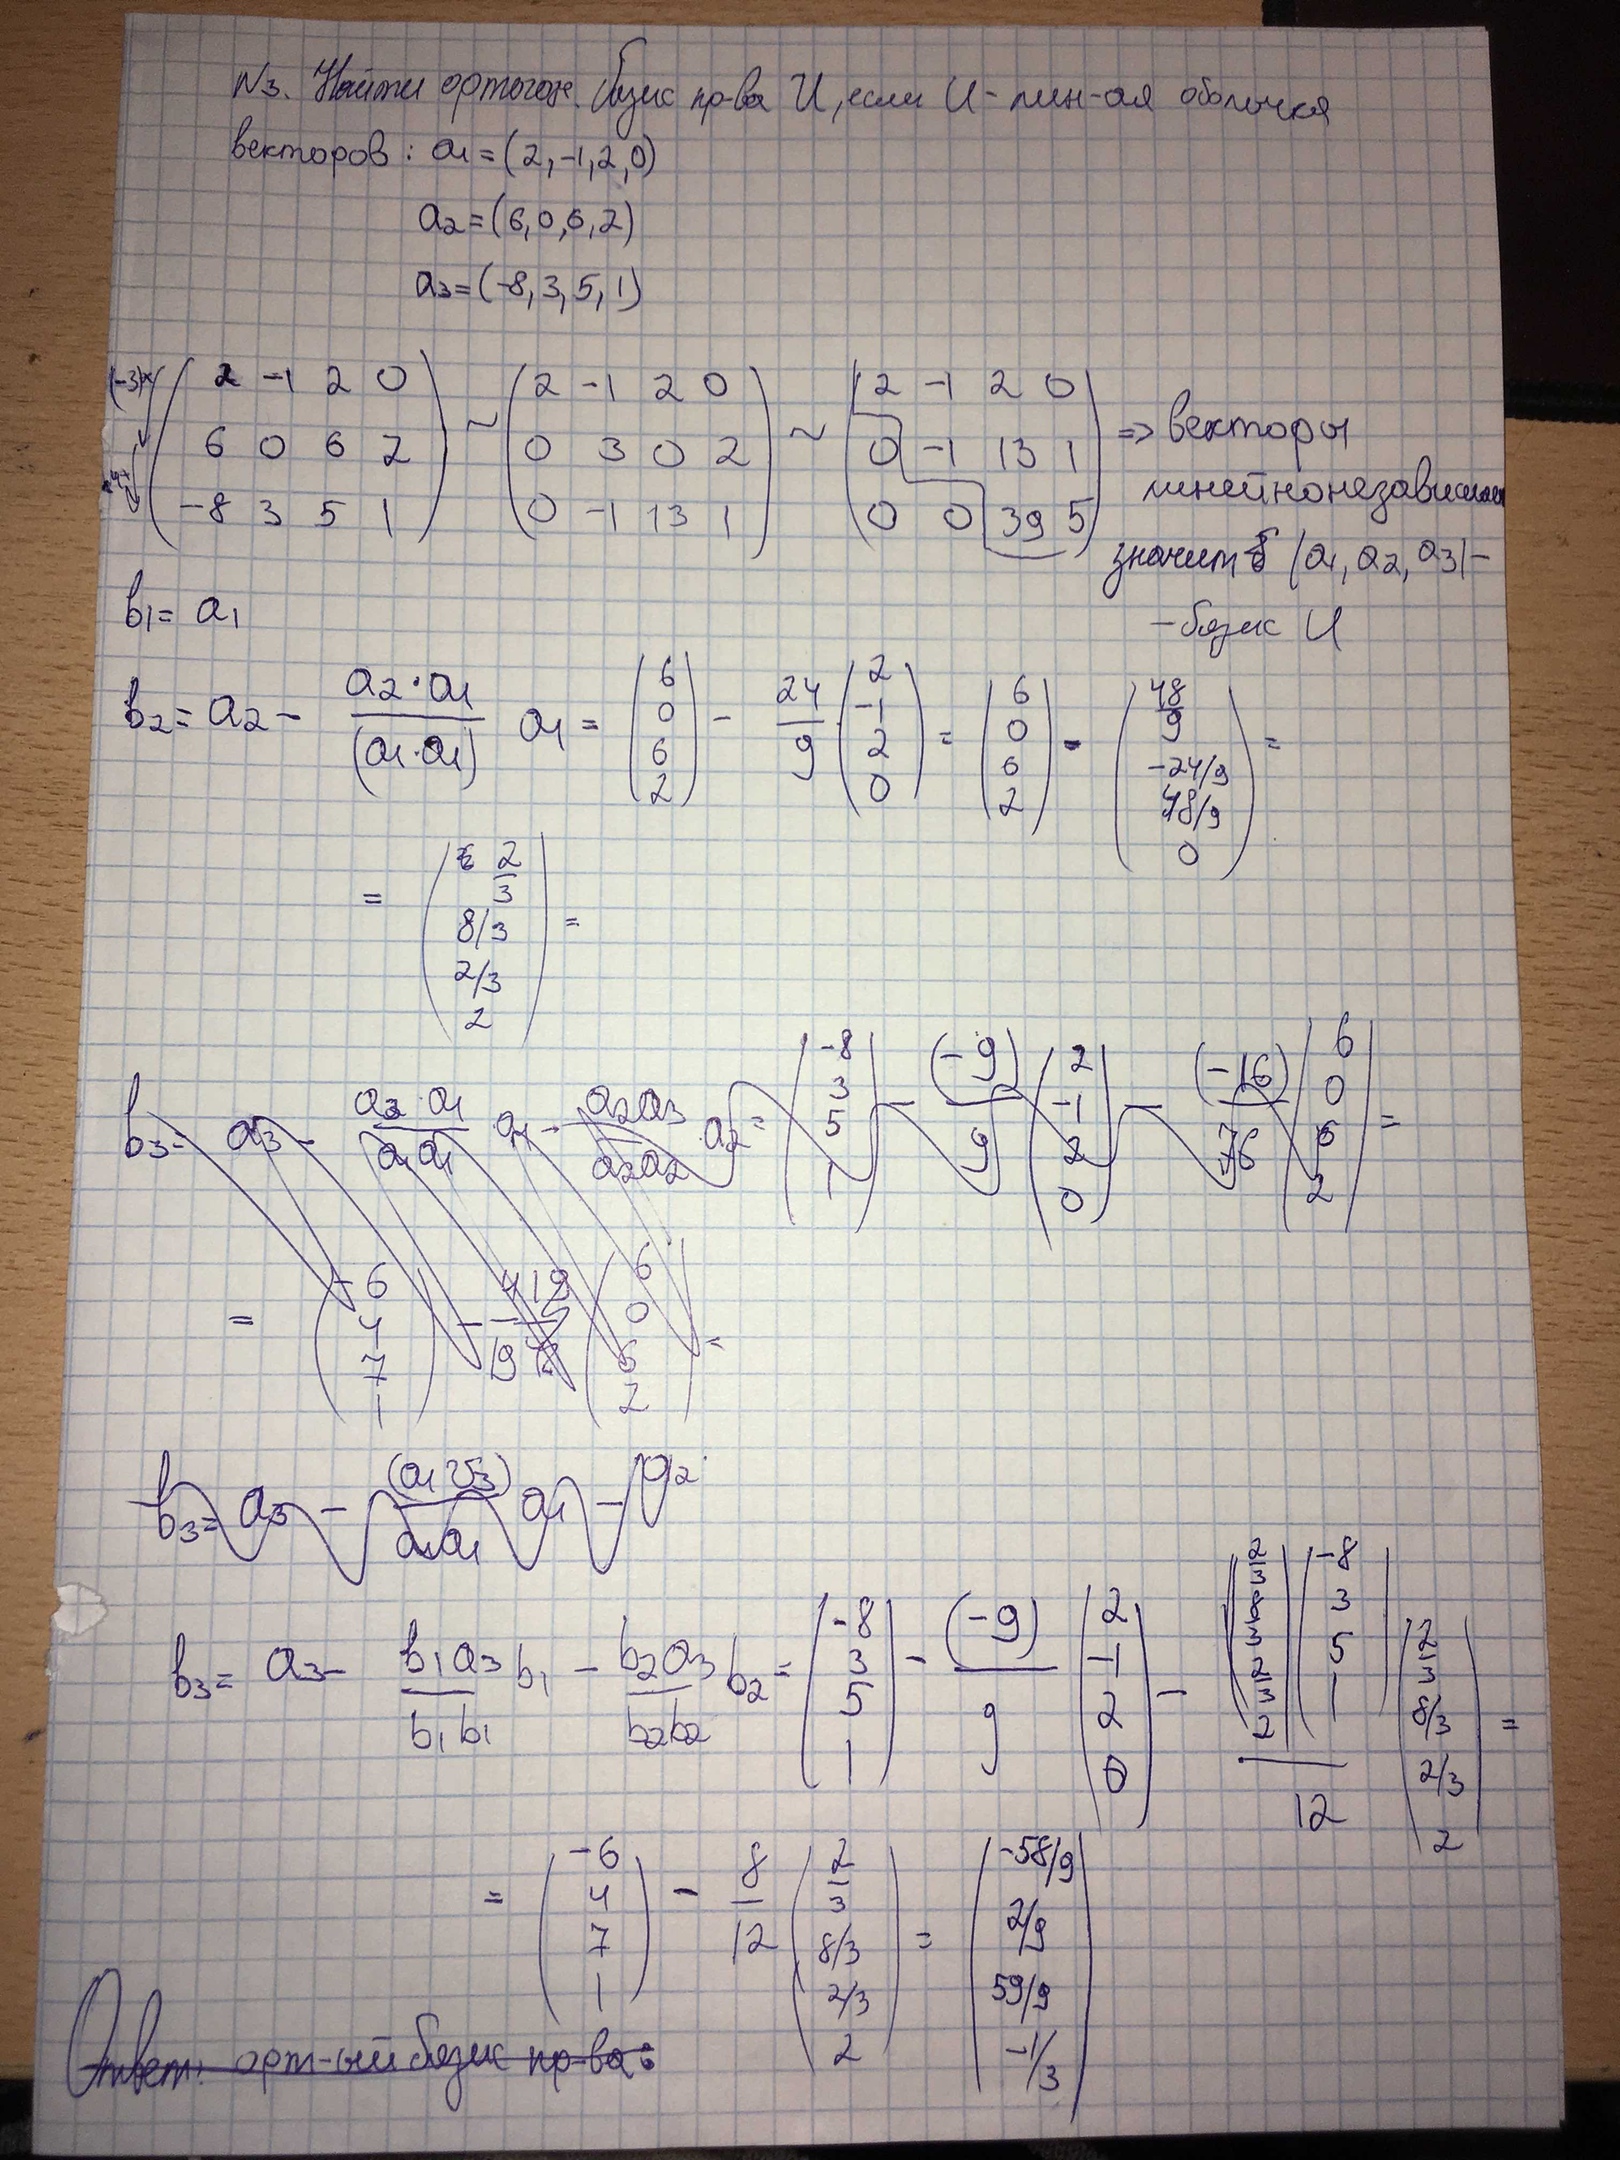 N3. Найти ортогон. базис пр-ва U, если U - лин-ая оболочка
векторов: a1 = (2, -1, 2, 0)
a2 = (6, 0, 6, 2)
a3 = (-8, 3, 5, 1)
(-3)×
2 -1 2 0 ~ 2 -1 2 0 ~ 2 -1 2 0 => векторы
6 0 6 2 0 3 0 2 0 -1 13 1 линейнонезависимы
-8 3 5 1 0 -1 13 1 0 0 39 5
значит {a1, a2, a3} -
- базис U
b1 = a1
b2 = a2 - a2·a1/(a1·a1) a1 = (6 0 6 2) - 24/9 (2 -1 2 0) = (6 0 6 2) - (48/9 -24/9 48/9 0) =
= (2/3 8/3 2/3 2) =
b3 = a3 - a3·a1/a1a1 · a1 - a2a3/a2a2 · a2 = (-8 3 5 1) - (-9)/9 (2 -1 2 0) - (-16)/76 (6 0 6 2) =
= (-6 4 7 1) - (6 0 6 2) =
b3 = a3 - a1 - a2
b3 = a3 - b1a3/b1b1 b1 - b2a3/b2b2 b2 = (-8 3 5 1) - (-9)/9 (2 -1 2 0) - (2/3 8/3 2/3 2)(-8 3 5 1)/12 (2/3 8/3 2/3 2) =
= (-6 4 7 1) - 8/12 (2/3 8/3 2/3 2) = (-58/9 2/9 59/9 -1/3)
Ответ: орт-ый базис пр-ва: